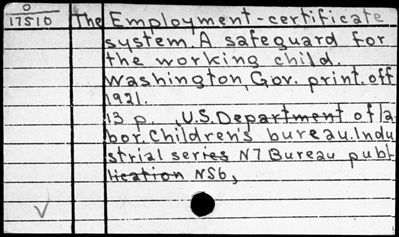 O
17510
The Employment-certificate
system. A safeguard for
the working child.
Washington, Gov. print. off
1921.
13 p. , U.S. Department of la
bor. Children's bureau. Indu
strial series N7 Bureau publ
lication NS6,